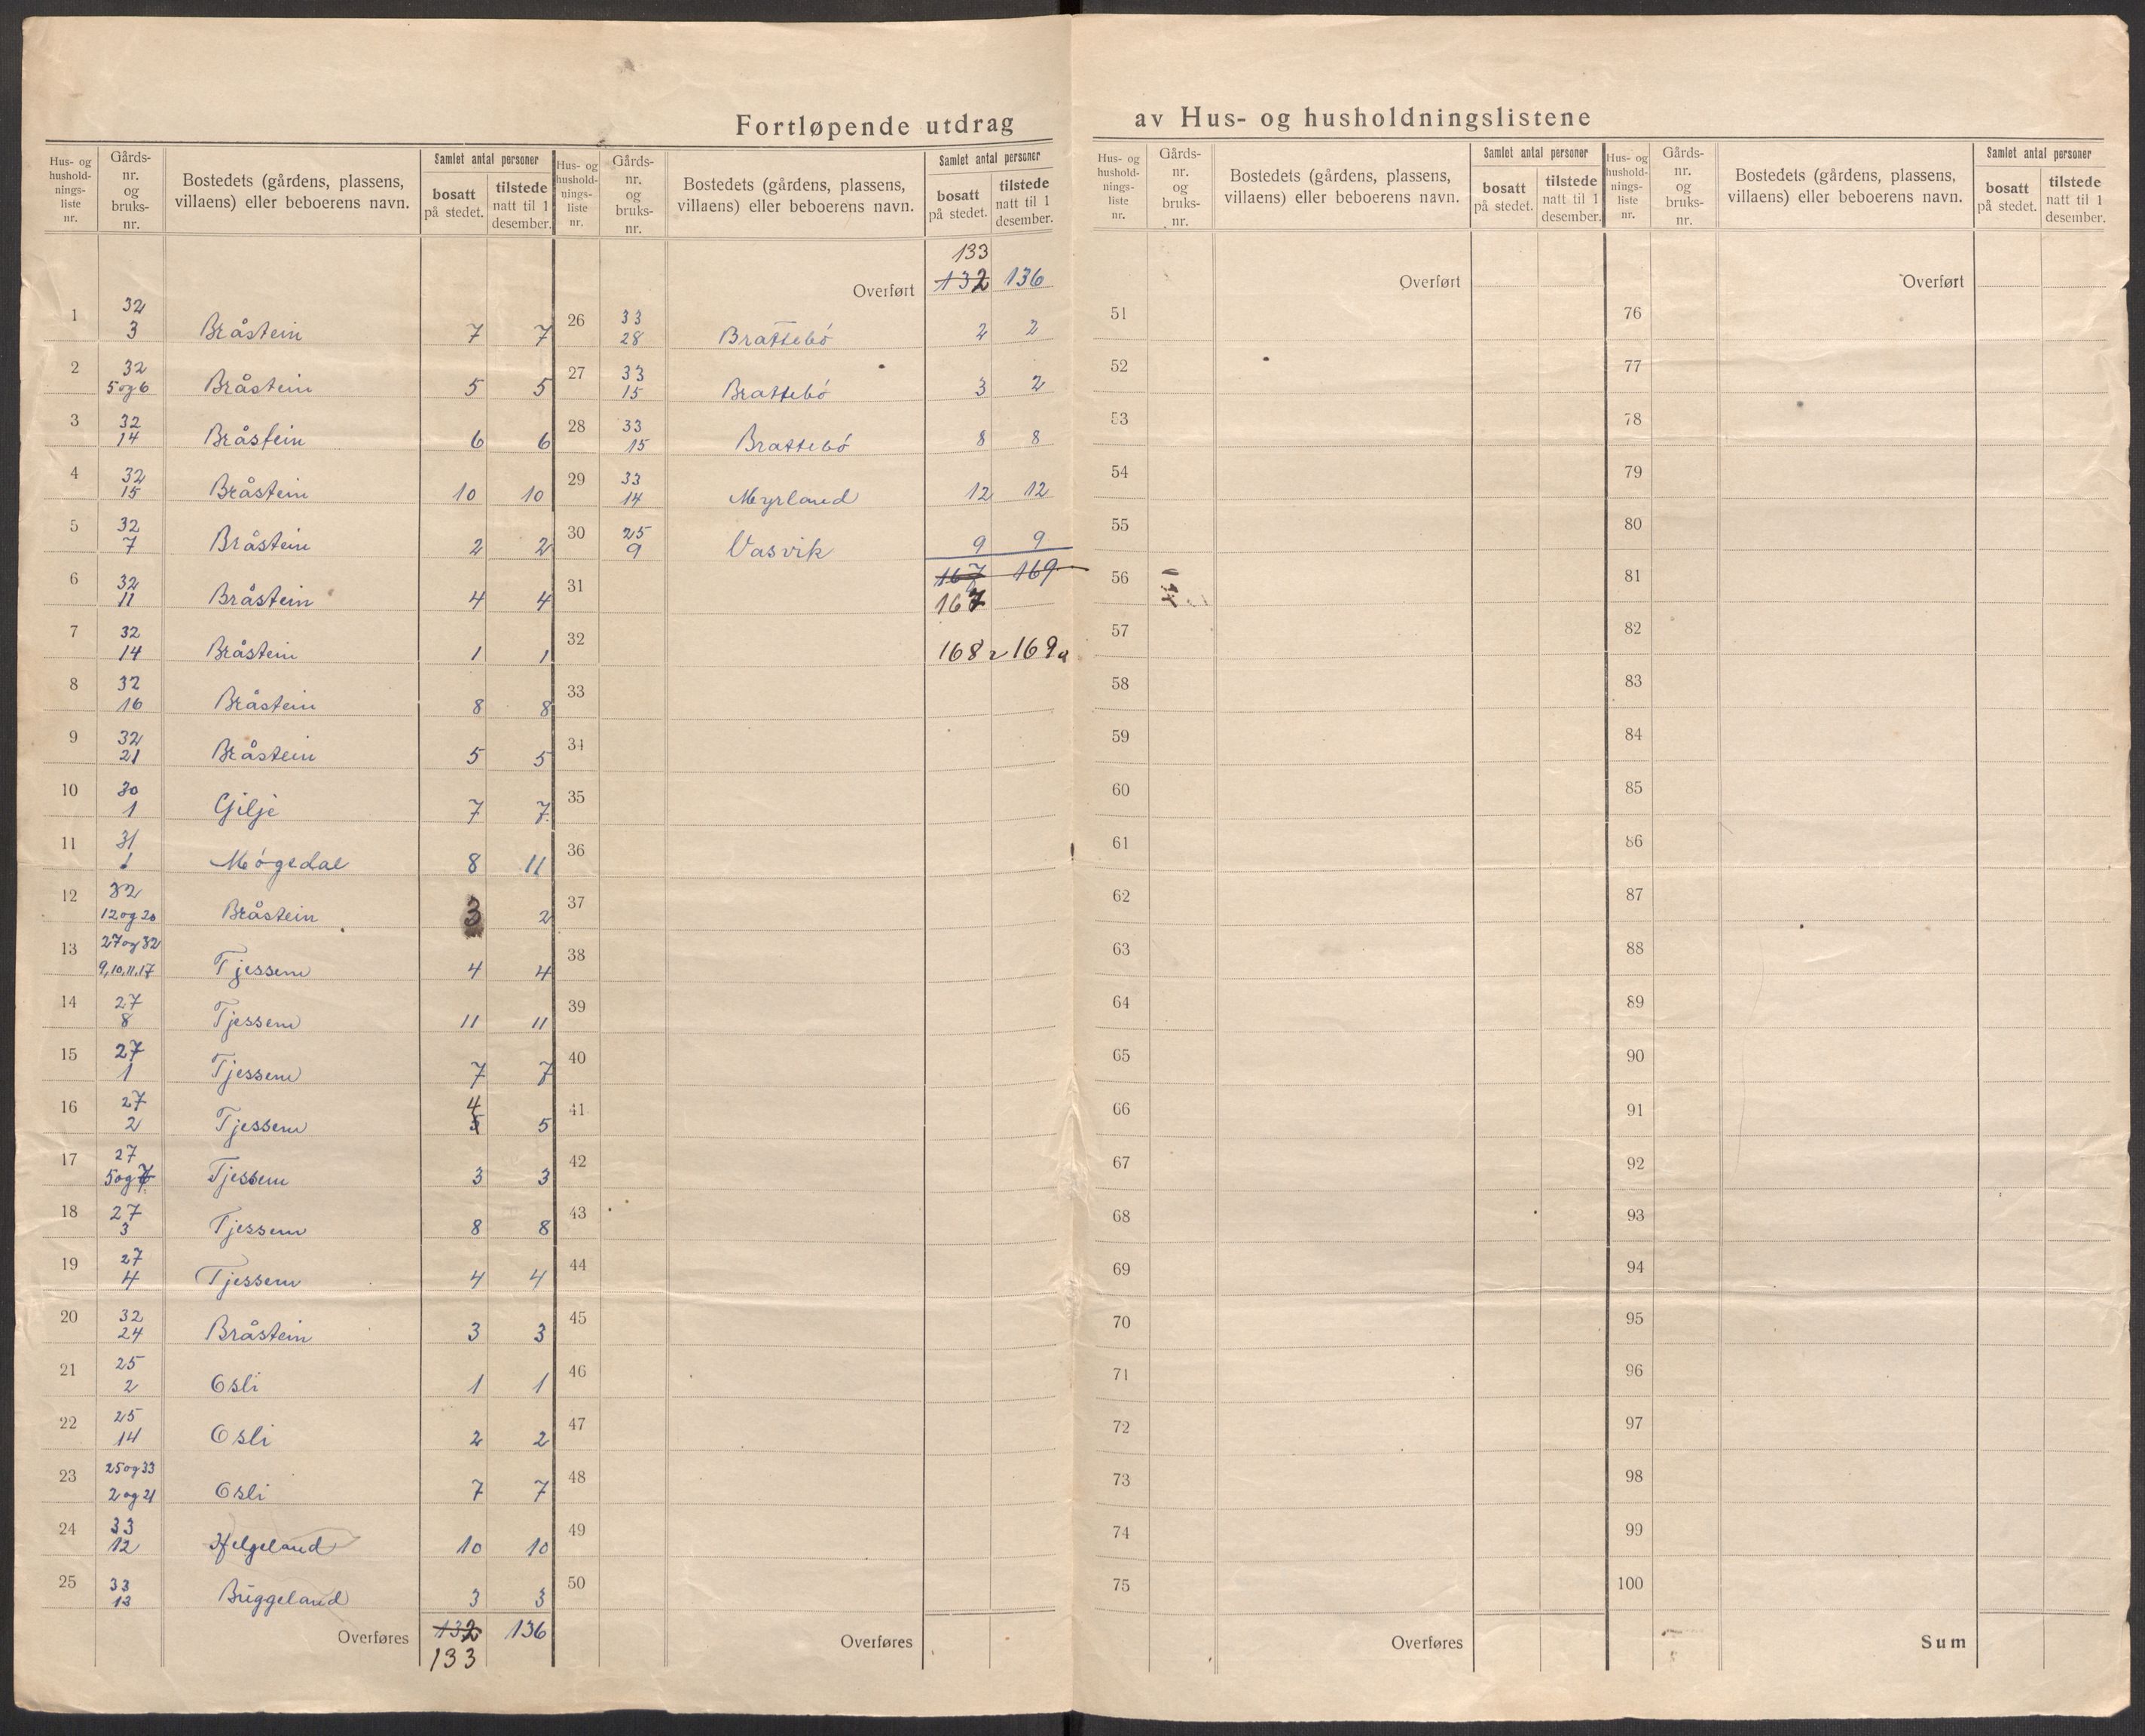 Fortløpende utdrag av Hus- og husholdningslistene
Hus- og husholdnings-liste nr. | Gårds-nr. og bruks-nr. | Bostedets (gårdens, plassens, villaens) eller beboerens navn. | Samlet antal personer | bosatt på stedet. | tilstede natt til 1 desember.
1 | 32 / 3 | Bråstein | 7 | 7
2 | 32 / 5 og 6 | Bråstein | 5 | 5
3 | 32 / 14 | Bråstein | 6 | 6
4 | 32 / 15 | Bråstein | 10 | 10
5 | 32 / 7 | Bråstein | 2 | 2
6 | 32 / 11 | Bråstein | 4 | 4
7 | 32 / 14 | Bråstein | 1 | 1
8 | 32 / 16 | Bråstein | 8 | 8
9 | 32 / 21 | Bråstein | 5 | 5
10 | 30 / 1 | Gilje | 7 | 7
11 | 31 / 1 | Møgedal | 8 | 11
12 | 32 / 12 og 20 | Bråstein | 3 | 2
13 | 27 og 32 / 9, 10, 11, 17 | Tjessem | 4 | 4
14 | 27 / 8 | Tjessem | 11 | 11
15 | 27 / 1 | Tjessem | 7 | 7
16 | 27 / 2 | Tjessem | 4 5 | 5
17 | 27 / 5 og 7 | Tjessem | 3 | 3
18 | 27 / 3 | Tjessem | 8 | 8
19 | 27 / 4 | Tjessem | 4 | 4
20 | 32 / 24 | Bråstein | 3 | 3
21 | 25 / 2 | Osli | 1 | 1
22 | 25 / 14 | Osli | 2 | 2
23 | 25 og 33 / 2 og 21 | Osli | 7 | 7
24 | 33 / 12 | Helgeland | 10 | 10
25 | 33 / 13 | Buggeland | 3 | 3
Overføres | 132 | 136
133
Hus- og husholdnings-liste nr. | Gårds-nr. og bruks-nr. | Bostedets (gårdens, plassens, villaens) eller beboerens navn. | Samlet antal personer | bosatt på stedet. | tilstede natt til 1 desember.
133
Overført | 132 | 136
26 | 33 / 28 | Brattebø | 2 | 2
27 | 33 / 15 | Brattebø | 3 | 2
28 | 33 / 15 | Brattebø | 8 | 8
29 | 33 / 14 | Myrland | 12 | 12
30 | 25 / 9 | Vasvik | 9 | 9
31 | 167 | 169
167
32 | 168 | 169
33
34
35
36
37
38
39
40
41
42
43
44
45
46
47
48
49
50
Overføres
Hus- og husholdnings-liste nr. | Gårds-nr. og bruks-nr. | Bostedets (gårdens, plassens, villaens) eller beboerens navn. | Samlet antal personer | bosatt på stedet. | tilstede natt til 1 desember.
Overført
51
52
53
54
55
56
57
58
59
60
61
62
63
64
65
66
67
68
69
70
71
72
73
74
75
Overføres
Hus- og husholdnings-liste nr. | Gårds-nr. og bruks-nr. | Bostedets (gårdens, plassens, villaens) eller beboerens navn. | Samlet antal personer | bosatt på stedet. | tilstede natt til 1 desember.
Overført
76
77
78
79
80
81
82
83
84
85
86
87
88
89
90
91
92
93
94
95
96
97
98
99
100
Sum